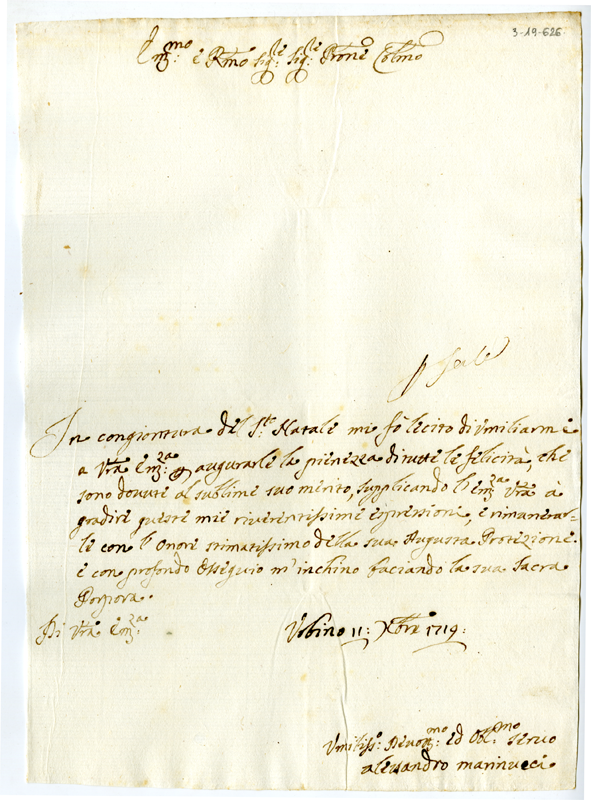 3-19-626
Emmo: e Rmo Sigre Sigre Prone Colmo
In congiontura del Ste: Natale mi fò lecito di Umiliarmi
a Vra Emza p augurarle la pienezza di tutte le felicità, che
sono dovute al sublime suo merito, supplicando l'Emza Vra à
gradire queste mie riverentissime espressioni, e rimunerar=
le con l'Onore stimatissimo della sua Augusta Protezione.
e con profondo Ossequio m'inchino baciando la sua Sacra
Porpora.
Di Vra Emza:
Urbino 11: Xbre 1719.
Umiliss:o Devotmo: ed Obl:mo Servo
Alessandro Marinucci